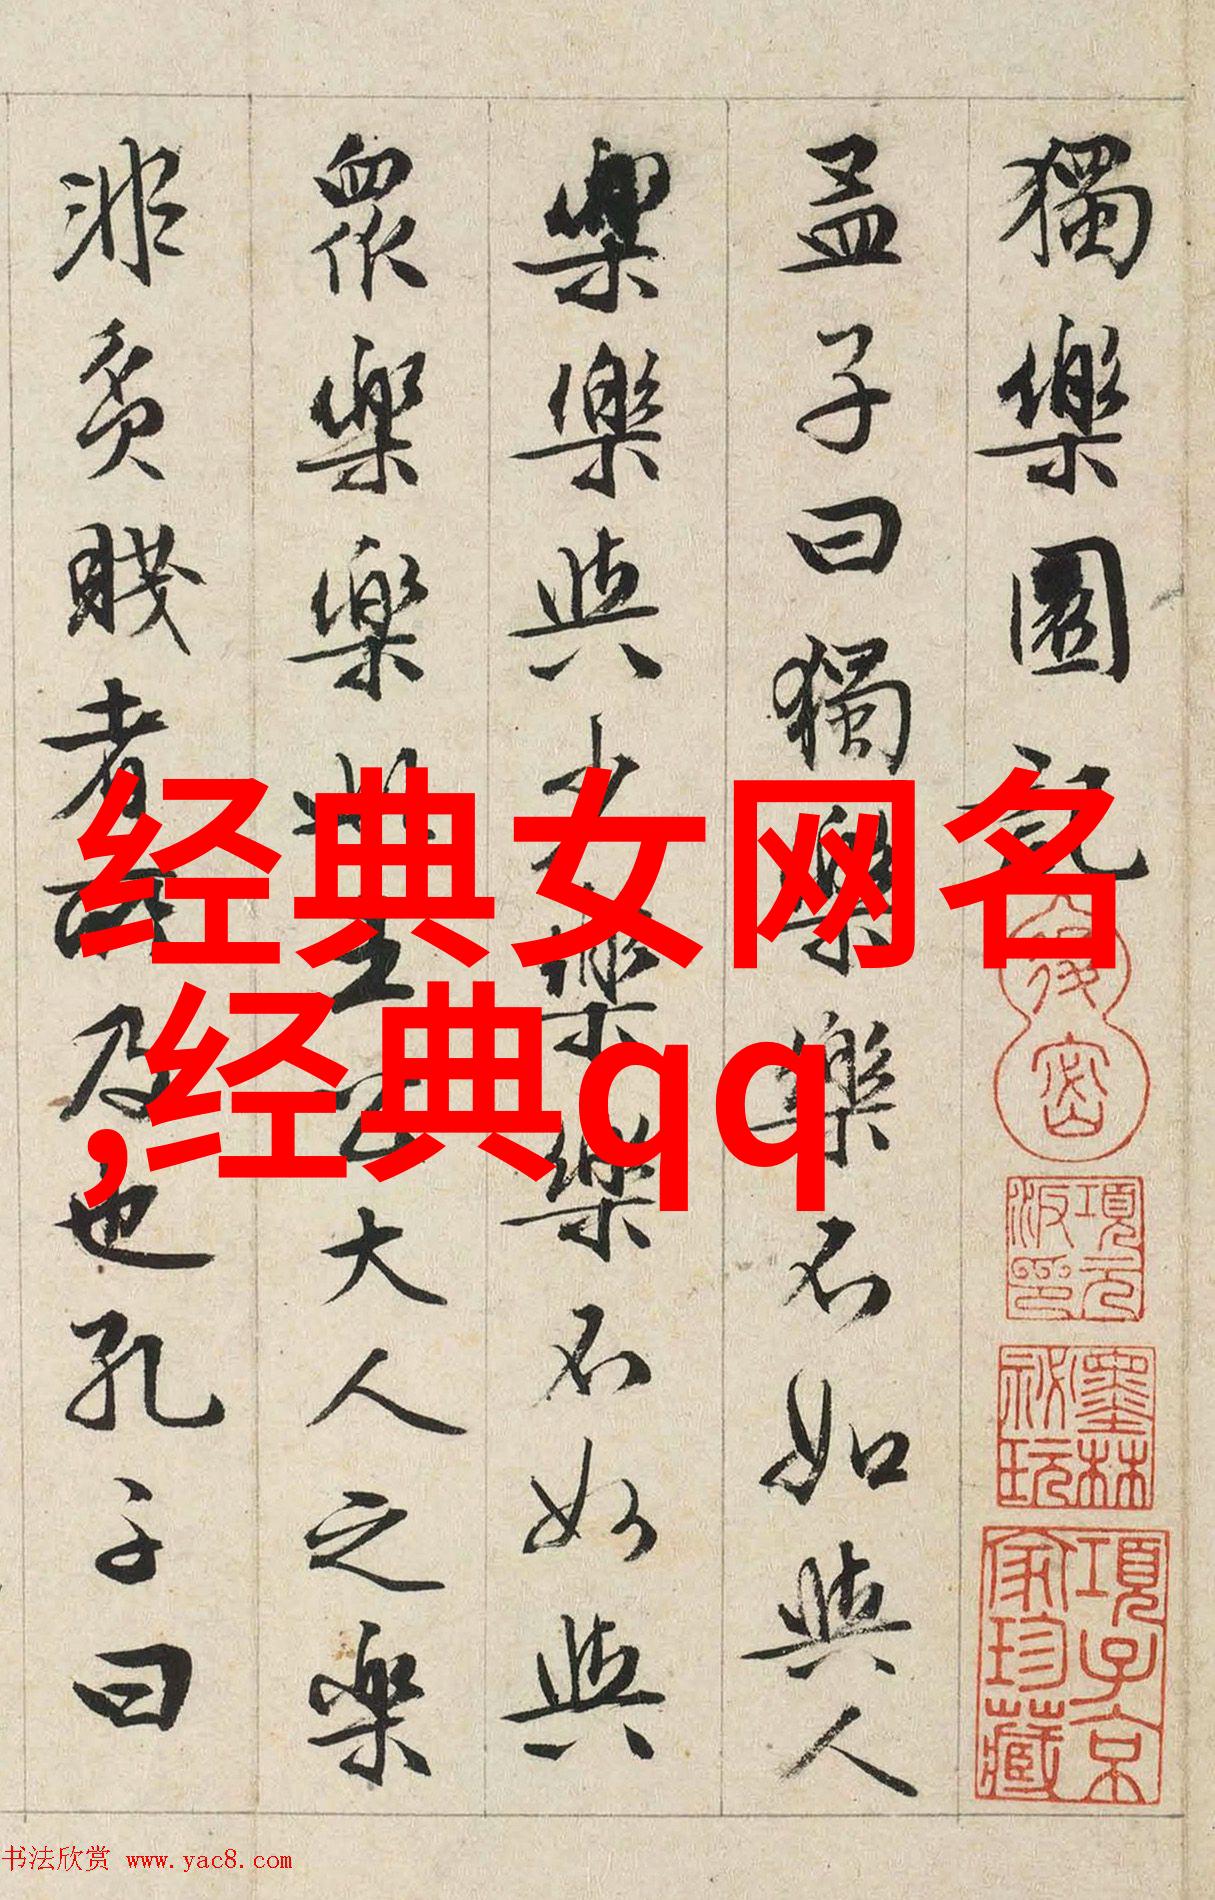 獨樂園記
孟子曰獨樂樂不如與人
樂樂與少樂樂不如與
眾樂樂此王公大人之樂
非貧賤者所及也孔子曰
经典女网名
,经典qq
項元汴印
墨林祕玩
項子京家珍藏
书法欣赏 www.yac8.com